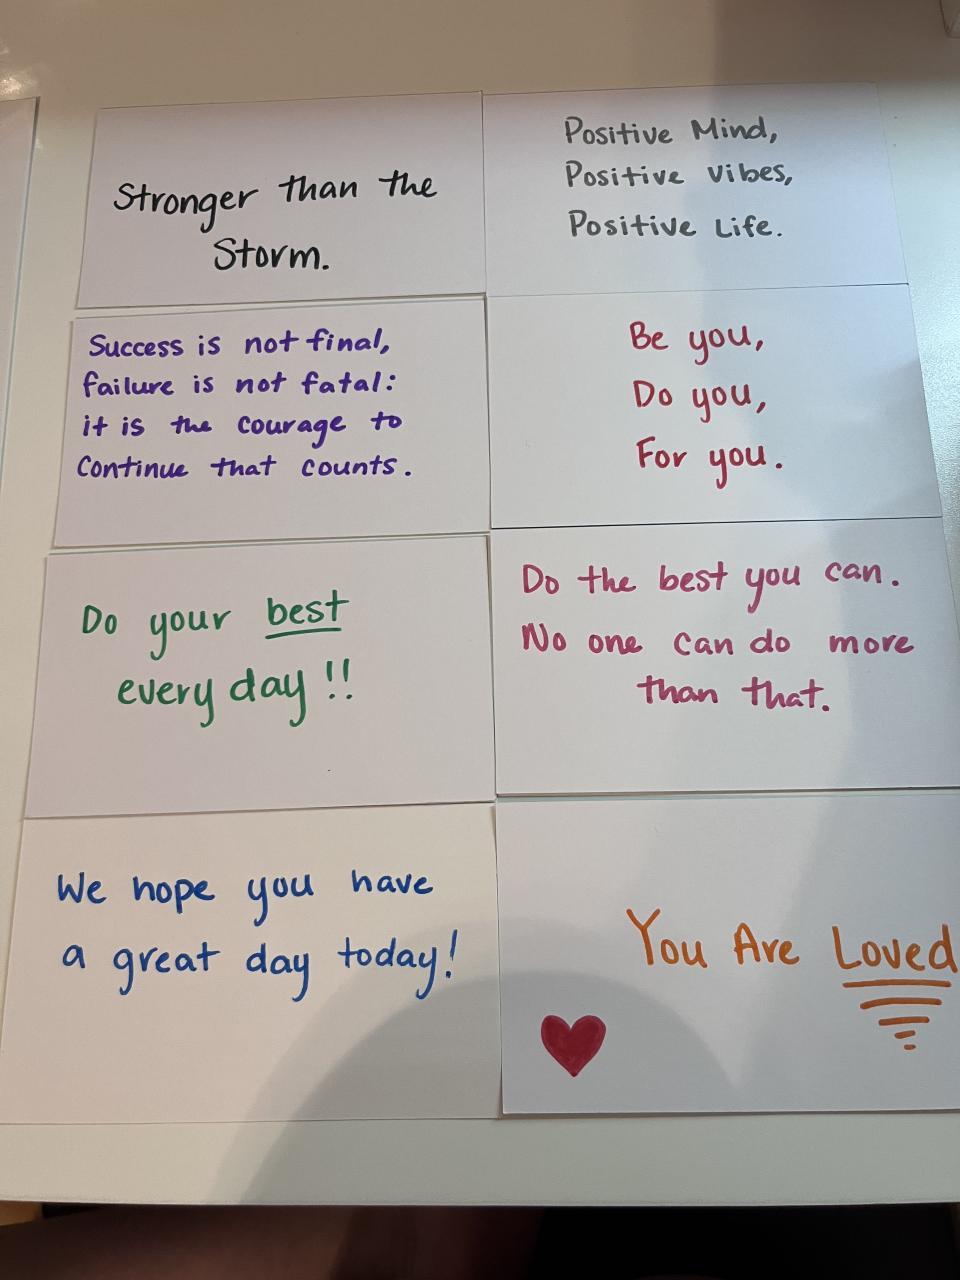 Stronger than the
Storm.
Positive Mind,
Positive Vibes,
Positive Life.
Success is not final,
failure is not fatal:
it is the courage to
Continue that counts.
Be you,
Do you,
For you.
Do your best
every day!!
Do the best you can.
No one can do more
than that.
We hope you have
a great day today!
You Are Loved